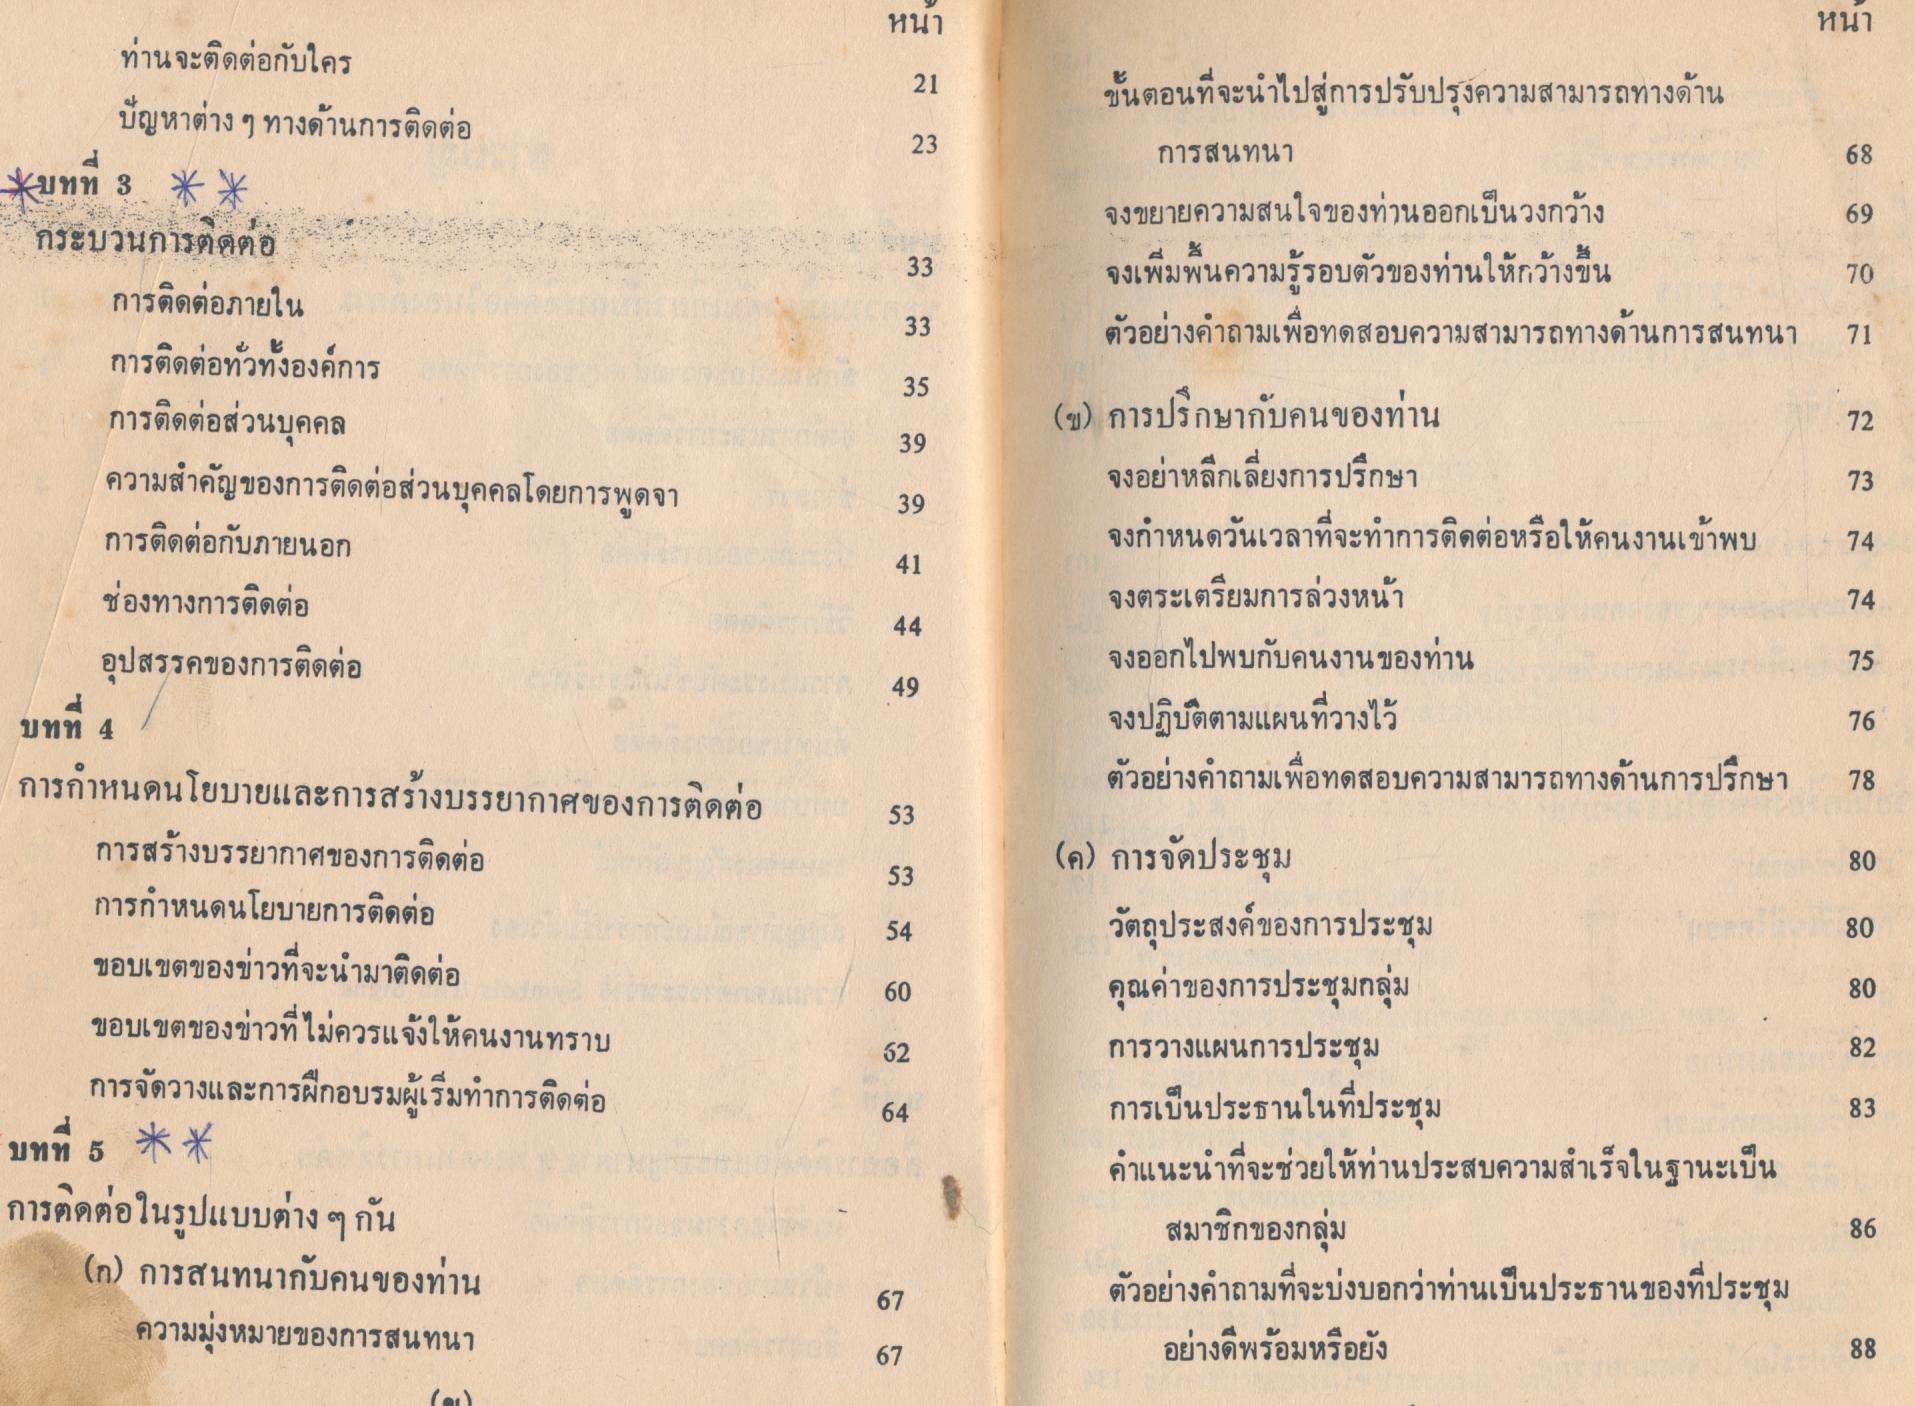 หน้า
ท่านจะติดต่อกับใคร 21
ปัญหาต่าง ๆ ทางด้านการติดต่อ 23
บทที่ 3
กระบวนการติดต่อ 33
การติดต่อภายใน 33
การติดต่อทั่วทั้งองค์การ 35
การติดต่อส่วนบุคคล 39
ความสำคัญของการติดต่อส่วนบุคคลโดยการพูดจา 39
การติดต่อกับภายนอก 41
ช่องทางการติดต่อ 44
อุปสรรคของการติดต่อ 49
บทที่ 4
การกำหนดนโยบายและการสร้างบรรยากาศของการติดต่อ 53
การสร้างบรรยากาศของการติดต่อ 53
การกำหนดนโยบายการติดต่อ 54
ขอบเขตของข่าวที่จะนำมาติดต่อ 60
ขอบเขตของข่าวที่ไม่ควรแจ้งให้คนงานทราบ 62
การจัดวางและการฝึกอบรมผู้เริ่มทำการติดต่อ 64
บทที่ 5
การติดต่อในรูปแบบต่าง ๆ กัน
(ก) การสนทนากับคนของท่าน 67
ความมุ่งหมายของการสนทนา 67
หน้า
ขั้นตอนที่จะนำไปสู่การปรับปรุงความสามารถทางด้าน
การสนทนา 68
จงขยายความสนใจของท่านออกเป็นวงกว้าง 69
จงเพิ่มพื้นความรู้รอบตัวของท่านให้กว้างขึ้น 70
ตัวอย่างคำถามเพื่อทดสอบความสามารถทางด้านการสนทนา 71
(ข) การปรึกษากับคนของท่าน 72
จงอย่าหลีกเลี่ยงการปรึกษา 73
จงกำหนดวันเวลาที่จะทำการติดต่อหรือให้คนงานเข้าพบ 74
จงตระเตรียมการล่วงหน้า 74
จงออกไปพบกับคนงานของท่าน 75
จงปฏิบัติตามแผนที่วางไว้ 76
ตัวอย่างคำถามเพื่อทดสอบความสามารถทางด้านการปรึกษา 78
(ค) การจัดประชุม 80
วัตถุประสงค์ของการประชุม 80
คุณค่าของการประชุมกลุ่ม 80
การวางแผนการประชุม 82
การเป็นประธานในที่ประชุม 83
คำแนะนำที่จะช่วยให้ท่านประสบความสำเร็จในฐานะเป็น
สมาชิกของกลุ่ม 86
ตัวอย่างคำถามที่จะบ่งบอกว่าท่านเป็นประธานของที่ประชุม
อย่างดีพร้อมหรือยัง 88